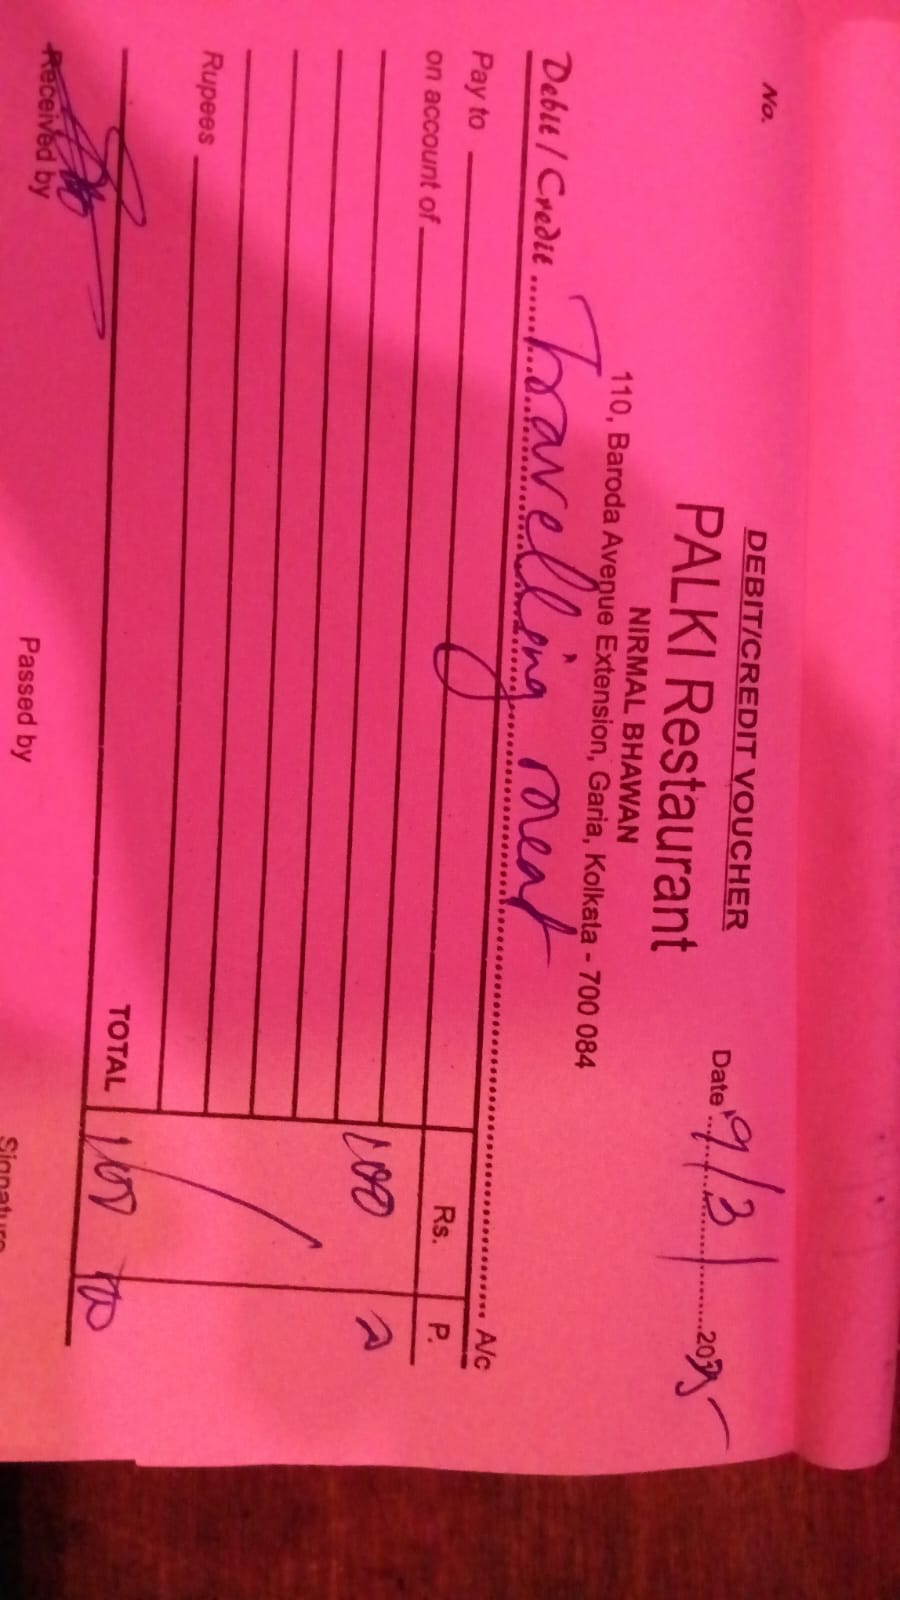 No.
DEBIT/CREDIT VOUCHER
PALKI Restaurant
Date 9/3/ 2025
NIRMAL BHAWAN
110, Baroda Avenue Extension, Garia, Kolkata - 700 084
Debit / Credit Travelling meat A/c
Pay to
Rs. P.
on account of
100
Rupees
TOTAL 100 00
Received by
Passed by
Signature